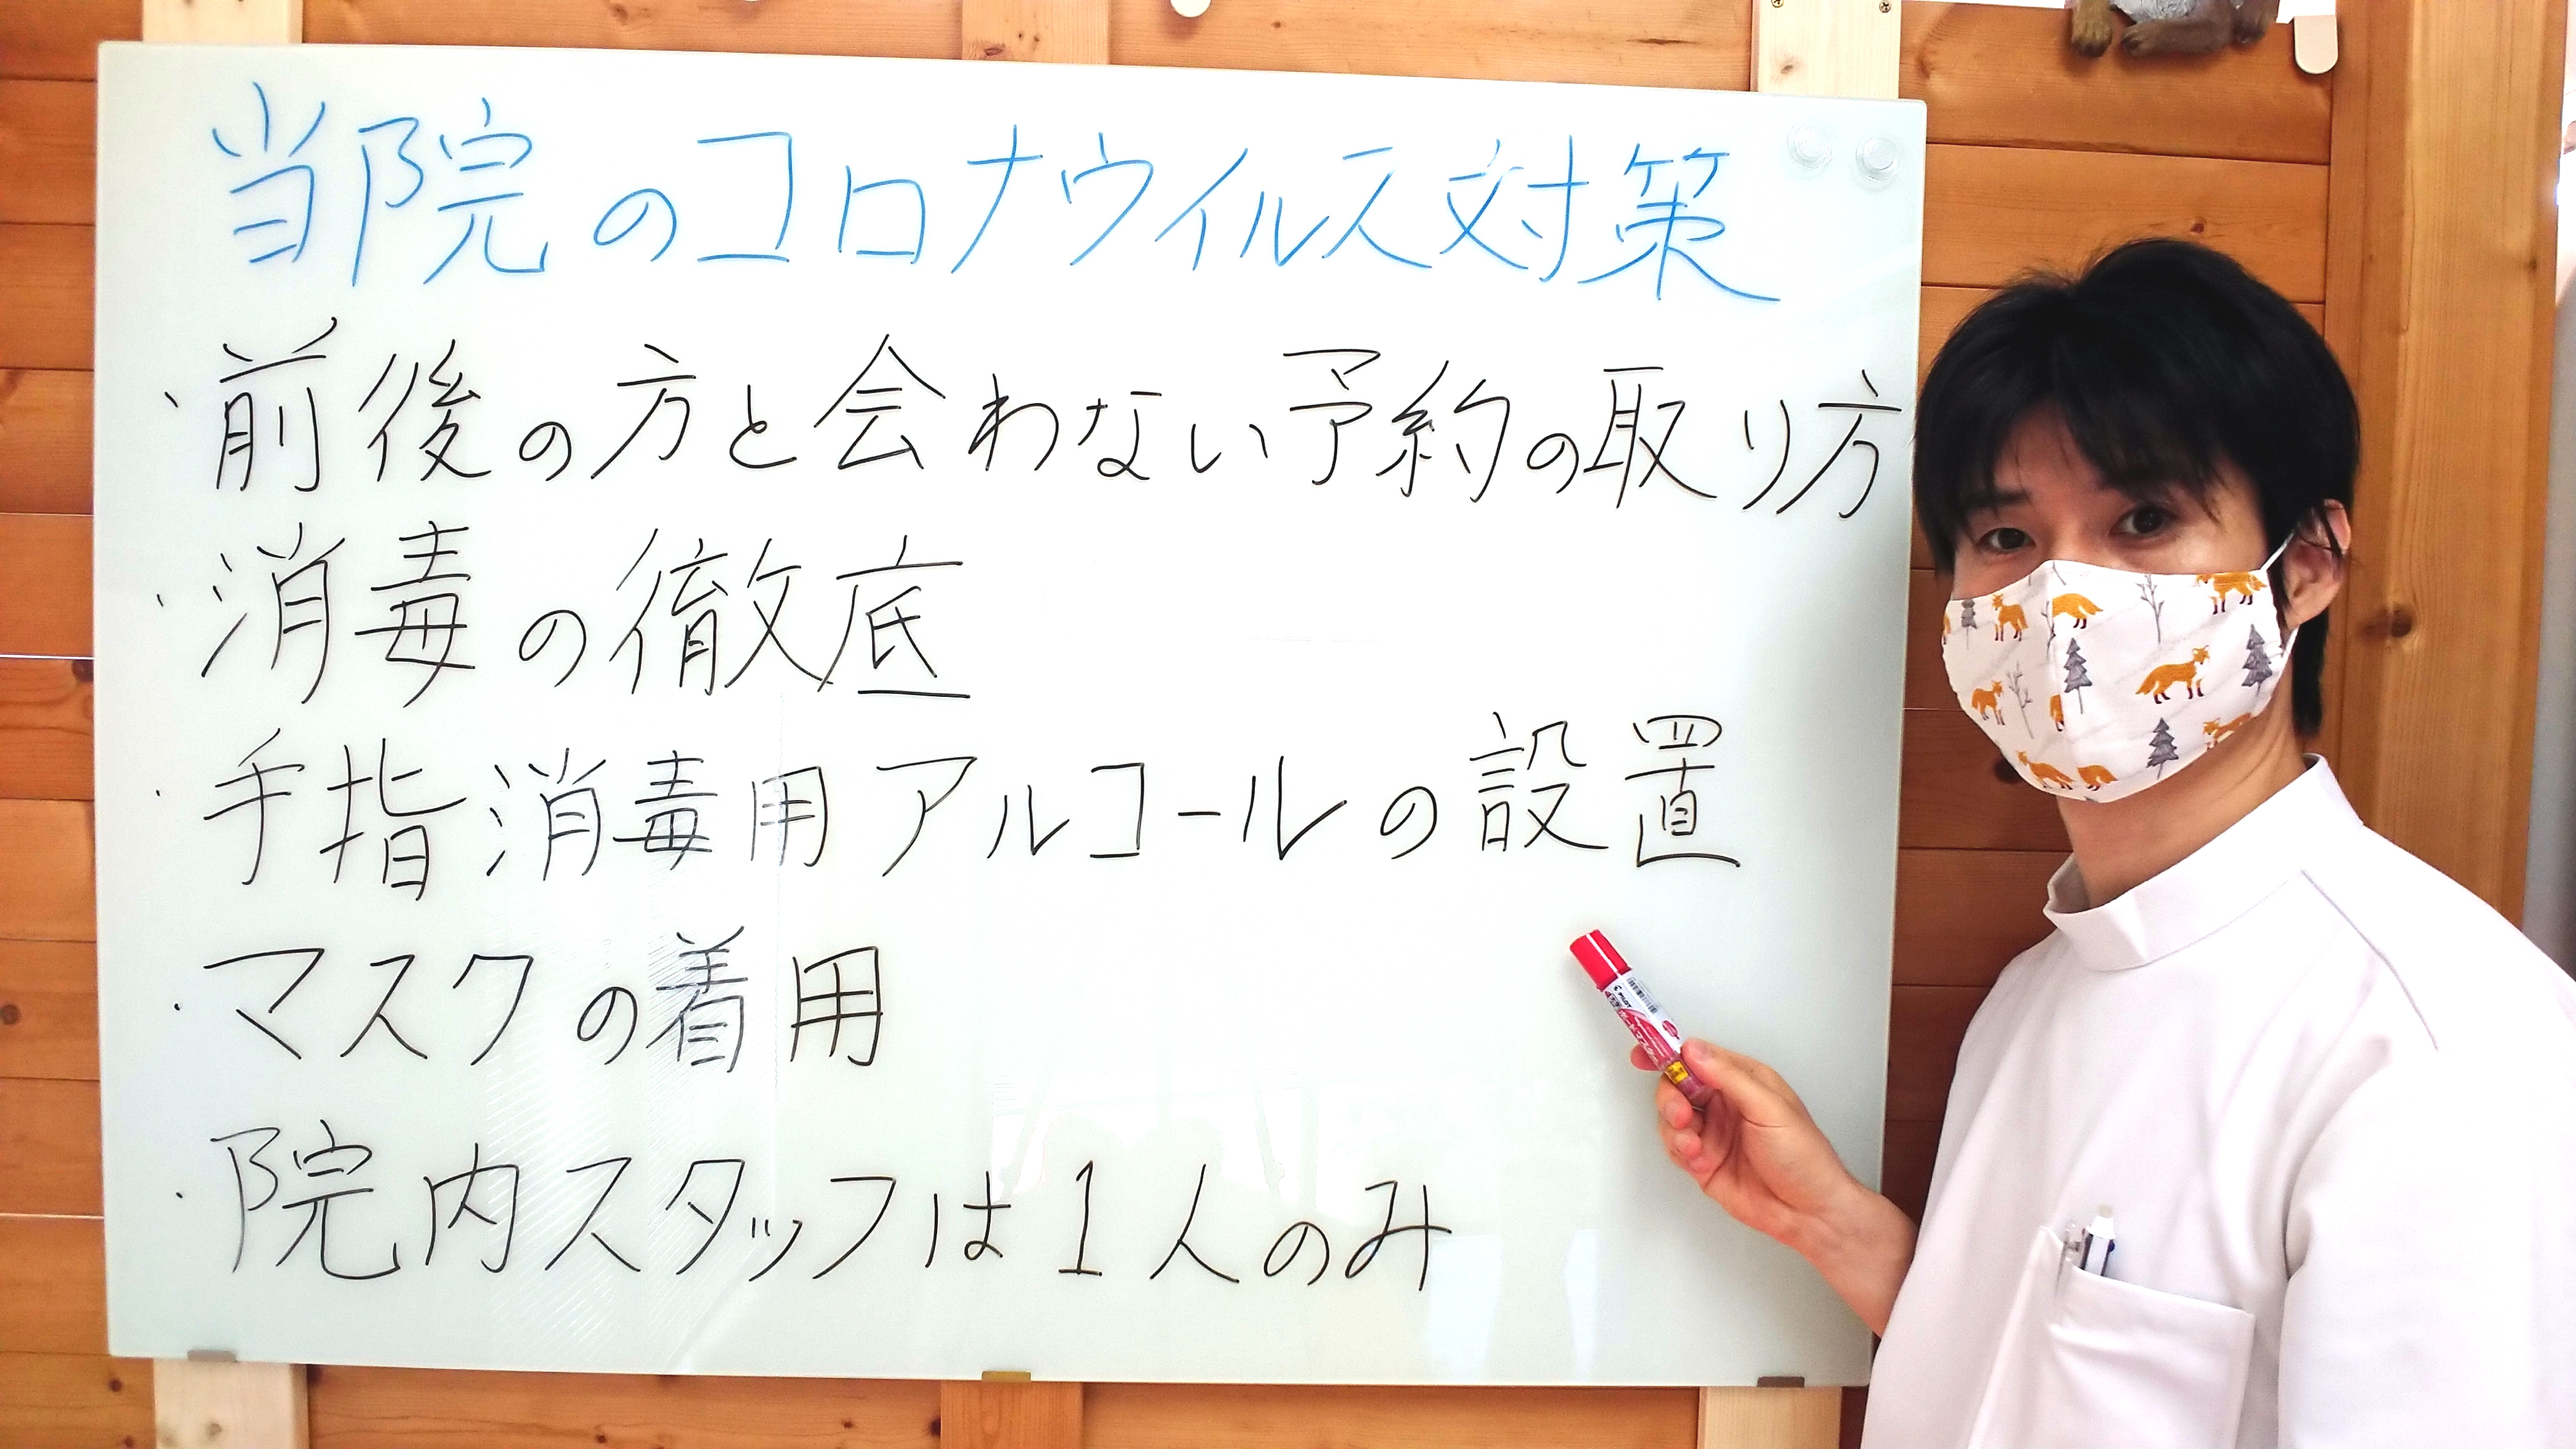 当院のコロナウイルス対策
・前後の方と会わない予約の取り方
・消毒の徹底
・手指消毒用アルコールの設置
・マスクの着用
・院内スタッフは1人のみ
PILOT